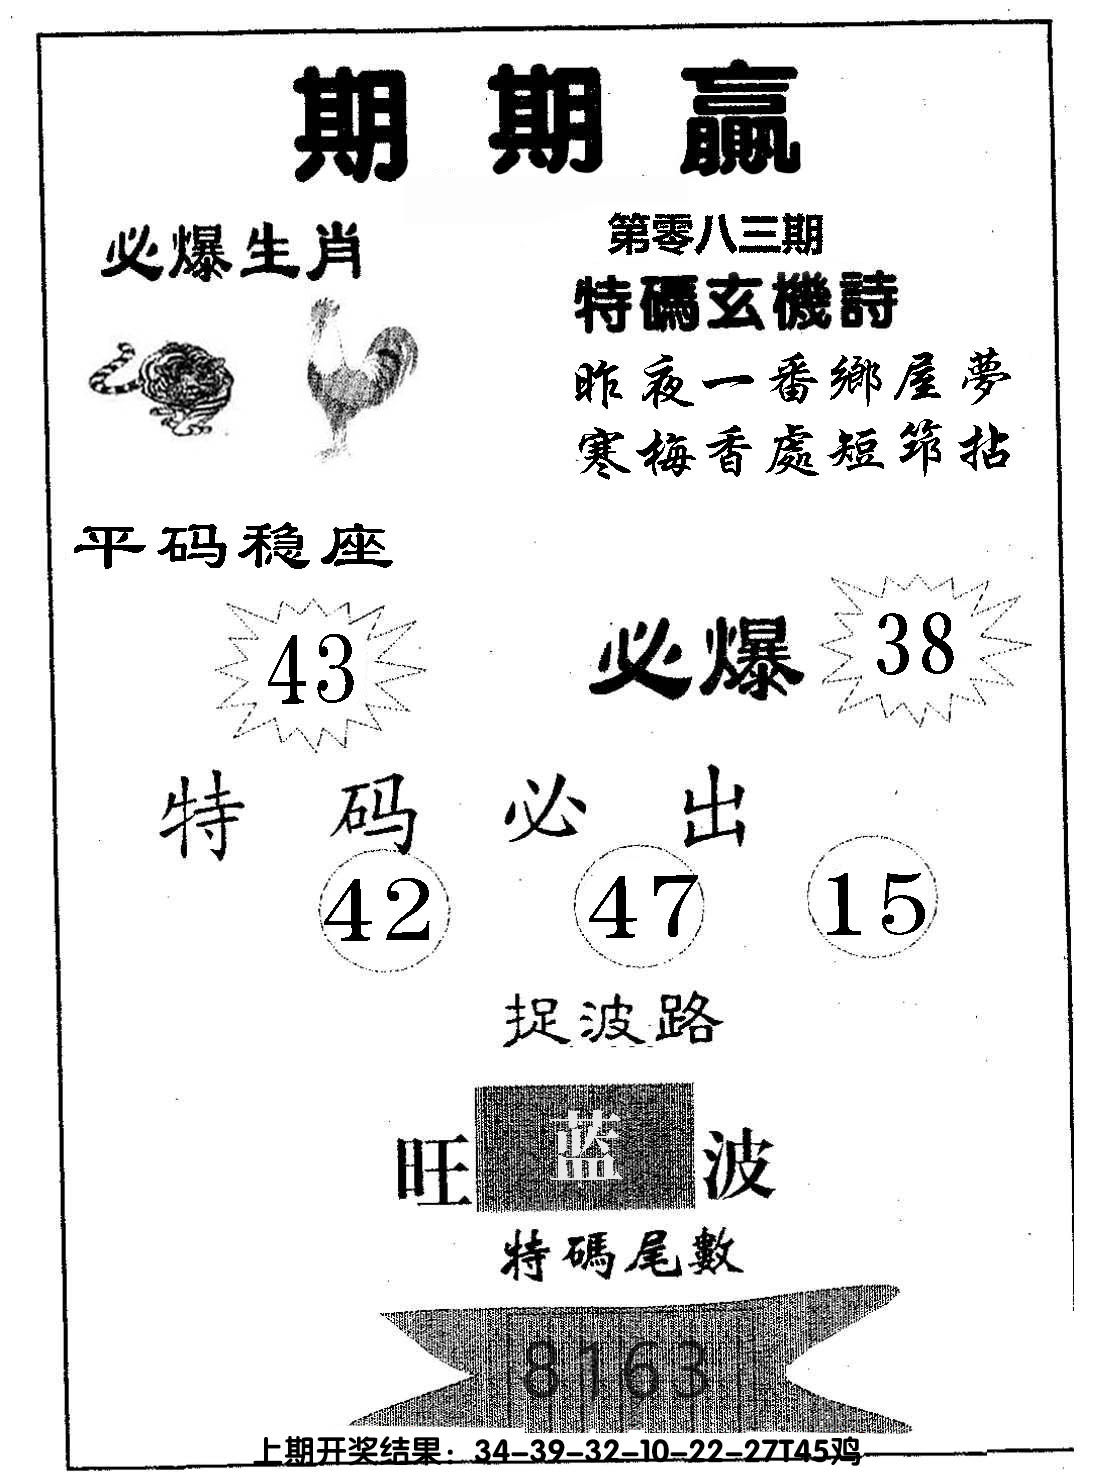 期期赢
必爆生肖
第零八三期
特碼玄機詩
昨夜一番鄉屋夢
寒梅香處短筇拈
平码稳座
43
必爆
38
特码必出
42 47 15
捉波路
旺蓝波
特碼尾數
8163
上期开奖结果：34-39-32-10-22-27T45鸡